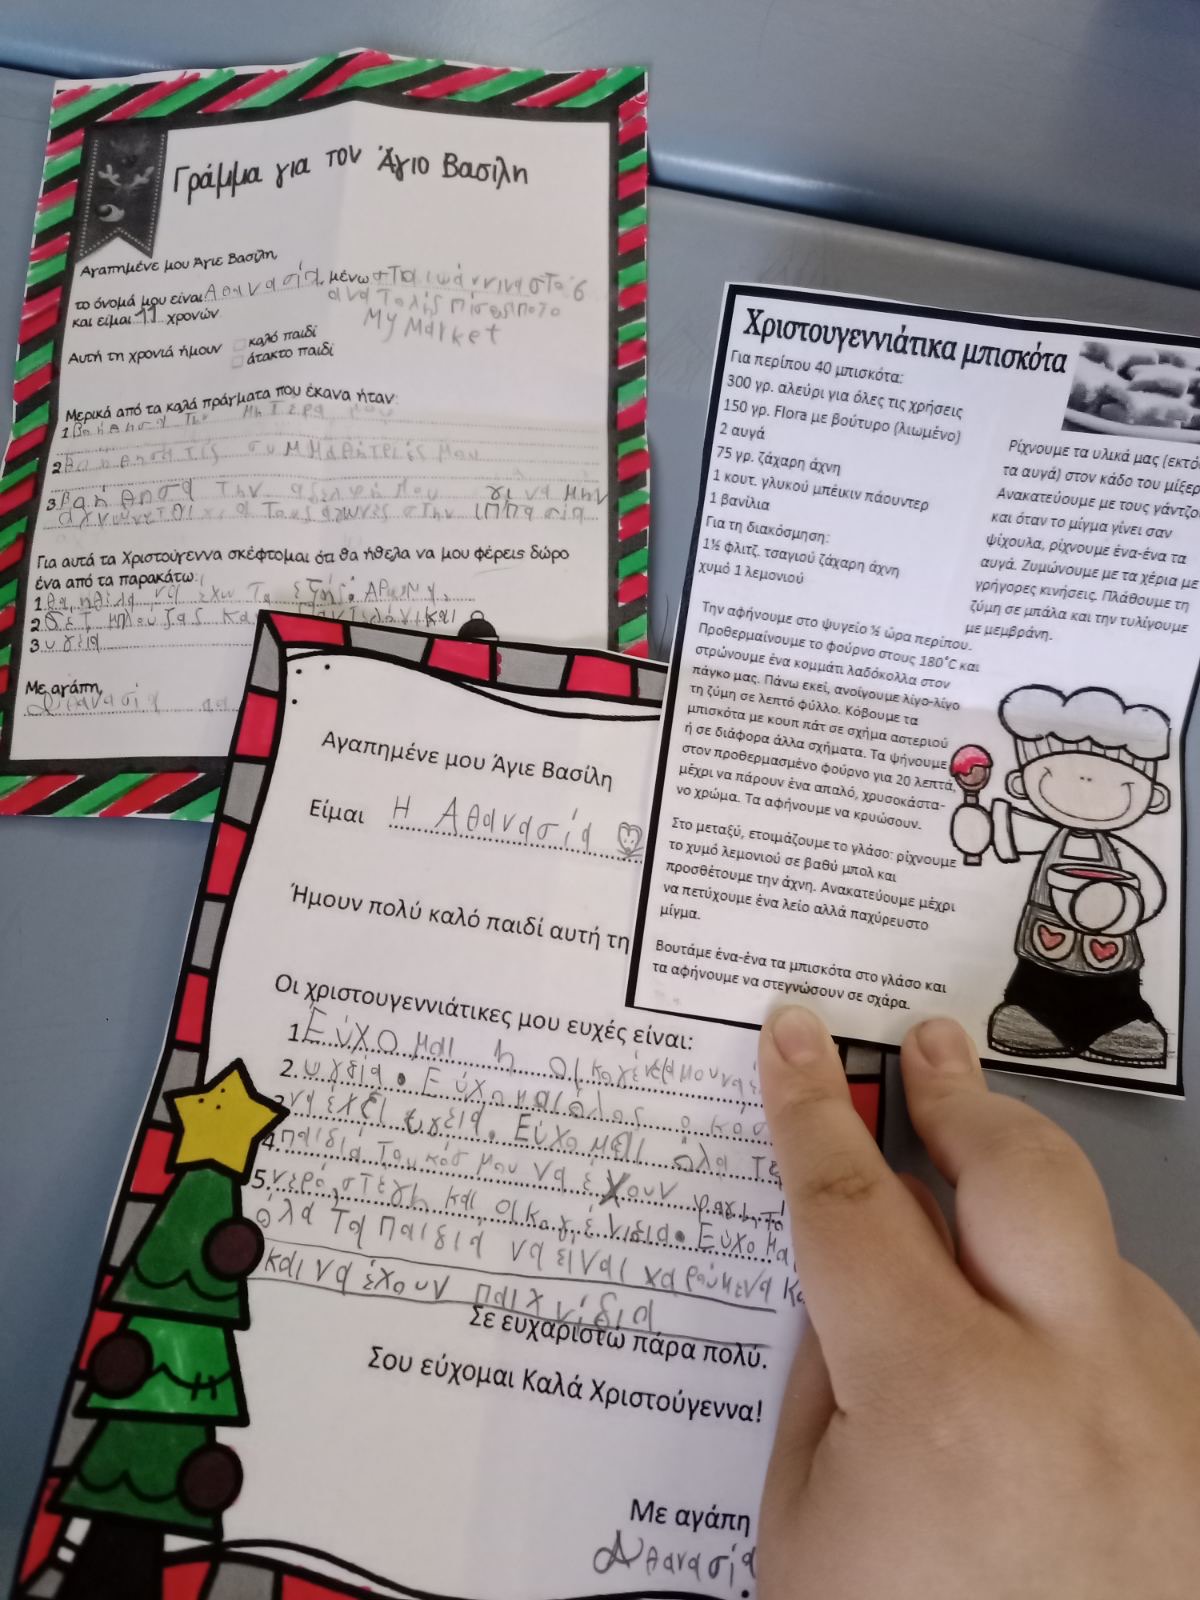 Γράμμα για τον Άγιο Βασίλη
Αγαπημένε μου Άγιε Βασίλη,
το όνομά μου είναι Αθανασία, μένω στα Ιωάννινα στο 6
ανατολής πίσω
My Market
και είμαι 11 χρονών.
Αυτή τη χρονιά ήμουν
καλό παιδί
άτακτο παιδί
Μερικά από τα καλά πράγματα που έκανα ήταν:
1. μητέρα μου
2. τις συμμαθήτριές μου
3. την αδελφή μου γι να μην
τους αγώνες στην ιππασία
Για αυτά τα Χριστούγεννα σκέφτομαι ότι θα ήθελα να μου φέρεις δώρο
ένα από τα παρακάτω:
1. θα ήθελα να έχω τα εξής:
2. Σετ μπλούζας και παντελόνι και
3. υγεία
Με αγάπη,
Αθανασία
Αγαπημένε μου Άγιε Βασίλη
Είμαι Η Αθανασία
Ήμουν πολύ καλό παιδί αυτή τη
Οι χριστουγεννιάτικες μου ευχές είναι:
1. Εύχομαι η οικογένεια μου να
2. υγδια. Εύχομαι όλος ο
3. να έχει υγεία. Εύχομαι όλα τα
4. παιδιά του κόσμου να έχουν φαγητό
5. νερό, στέγη και οικογένιδια. Εύχομαι
όλα τα παιδιά να είναι χαρούμενα
και να έχουν παιχνίδια
Σε ευχαριστώ πάρα πολύ.
Σου εύχομαι Καλά Χριστούγεννα!
Με αγάπη
Αθανασία
Χριστουγεννιάτικα μπισκότα
Για περίπου 40 μπισκότα:
300 γρ. αλεύρι για όλες τις χρήσεις
150 γρ. Flora με βούτυρο (λιωμένο)
2 αυγά
75 γρ. ζάχαρη άχνη
1 κουτ. γλυκού μπέικιν πάουντερ
1 βανίλια
Για τη διακόσμηση:
1½ φλιτζ. τσαγιού ζάχαρη άχνη
χυμό 1 λεμονιού
Ρίχνουμε τα υλικά μας (εκτός
τα αυγά) στον κάδο του μίξερ
Ανακατεύουμε με τους γάντζο
και όταν το μίγμα γίνει σαν
ψίχουλα, ρίχνουμε ένα-ένα τα
αυγά. Ζυμώνουμε με τα χέρια με
γρήγορες κινήσεις. Πλάθουμε τη
ζύμη σε μπάλα και την τυλίγουμε
με μεμβράνη.
Την αφήνουμε στο ψυγείο ½ ώρα περίπου.
Προθερμαίνουμε το φούρνο στους 180˚C και
στρώνουμε ένα κομμάτι λαδόκολλα στον
πάγκο μας. Πάνω εκεί, ανοίγουμε λίγο-λίγο
τη ζύμη σε λεπτό φύλλο. Κόβουμε τα
μπισκότα με κουπ πάτ σε σχήμα αστεριού
ή σε διάφορα άλλα σχήματα. Τα ψήνουμε
στον προθερμασμένο φούρνο για 20 λεπτά,
μέχρι να πάρουν ένα απαλό, χρυσοκάστα-
νο χρώμα. Τα αφήνουμε να κρυώσουν.
Στο μεταξύ, ετοιμάζουμε το γλάσο: ρίχνουμε
το χυμό λεμονιού σε βαθύ μπολ και
προσθέτουμε την άχνη. Ανακατεύουμε μέχρι
να πετύχουμε ένα λείο αλλά παχύρευστο
μίγμα.
Βουτάμε ένα-ένα τα μπισκότα στο γλάσο και
τα αφήνουμε να στεγνώσουν σε σχάρα.